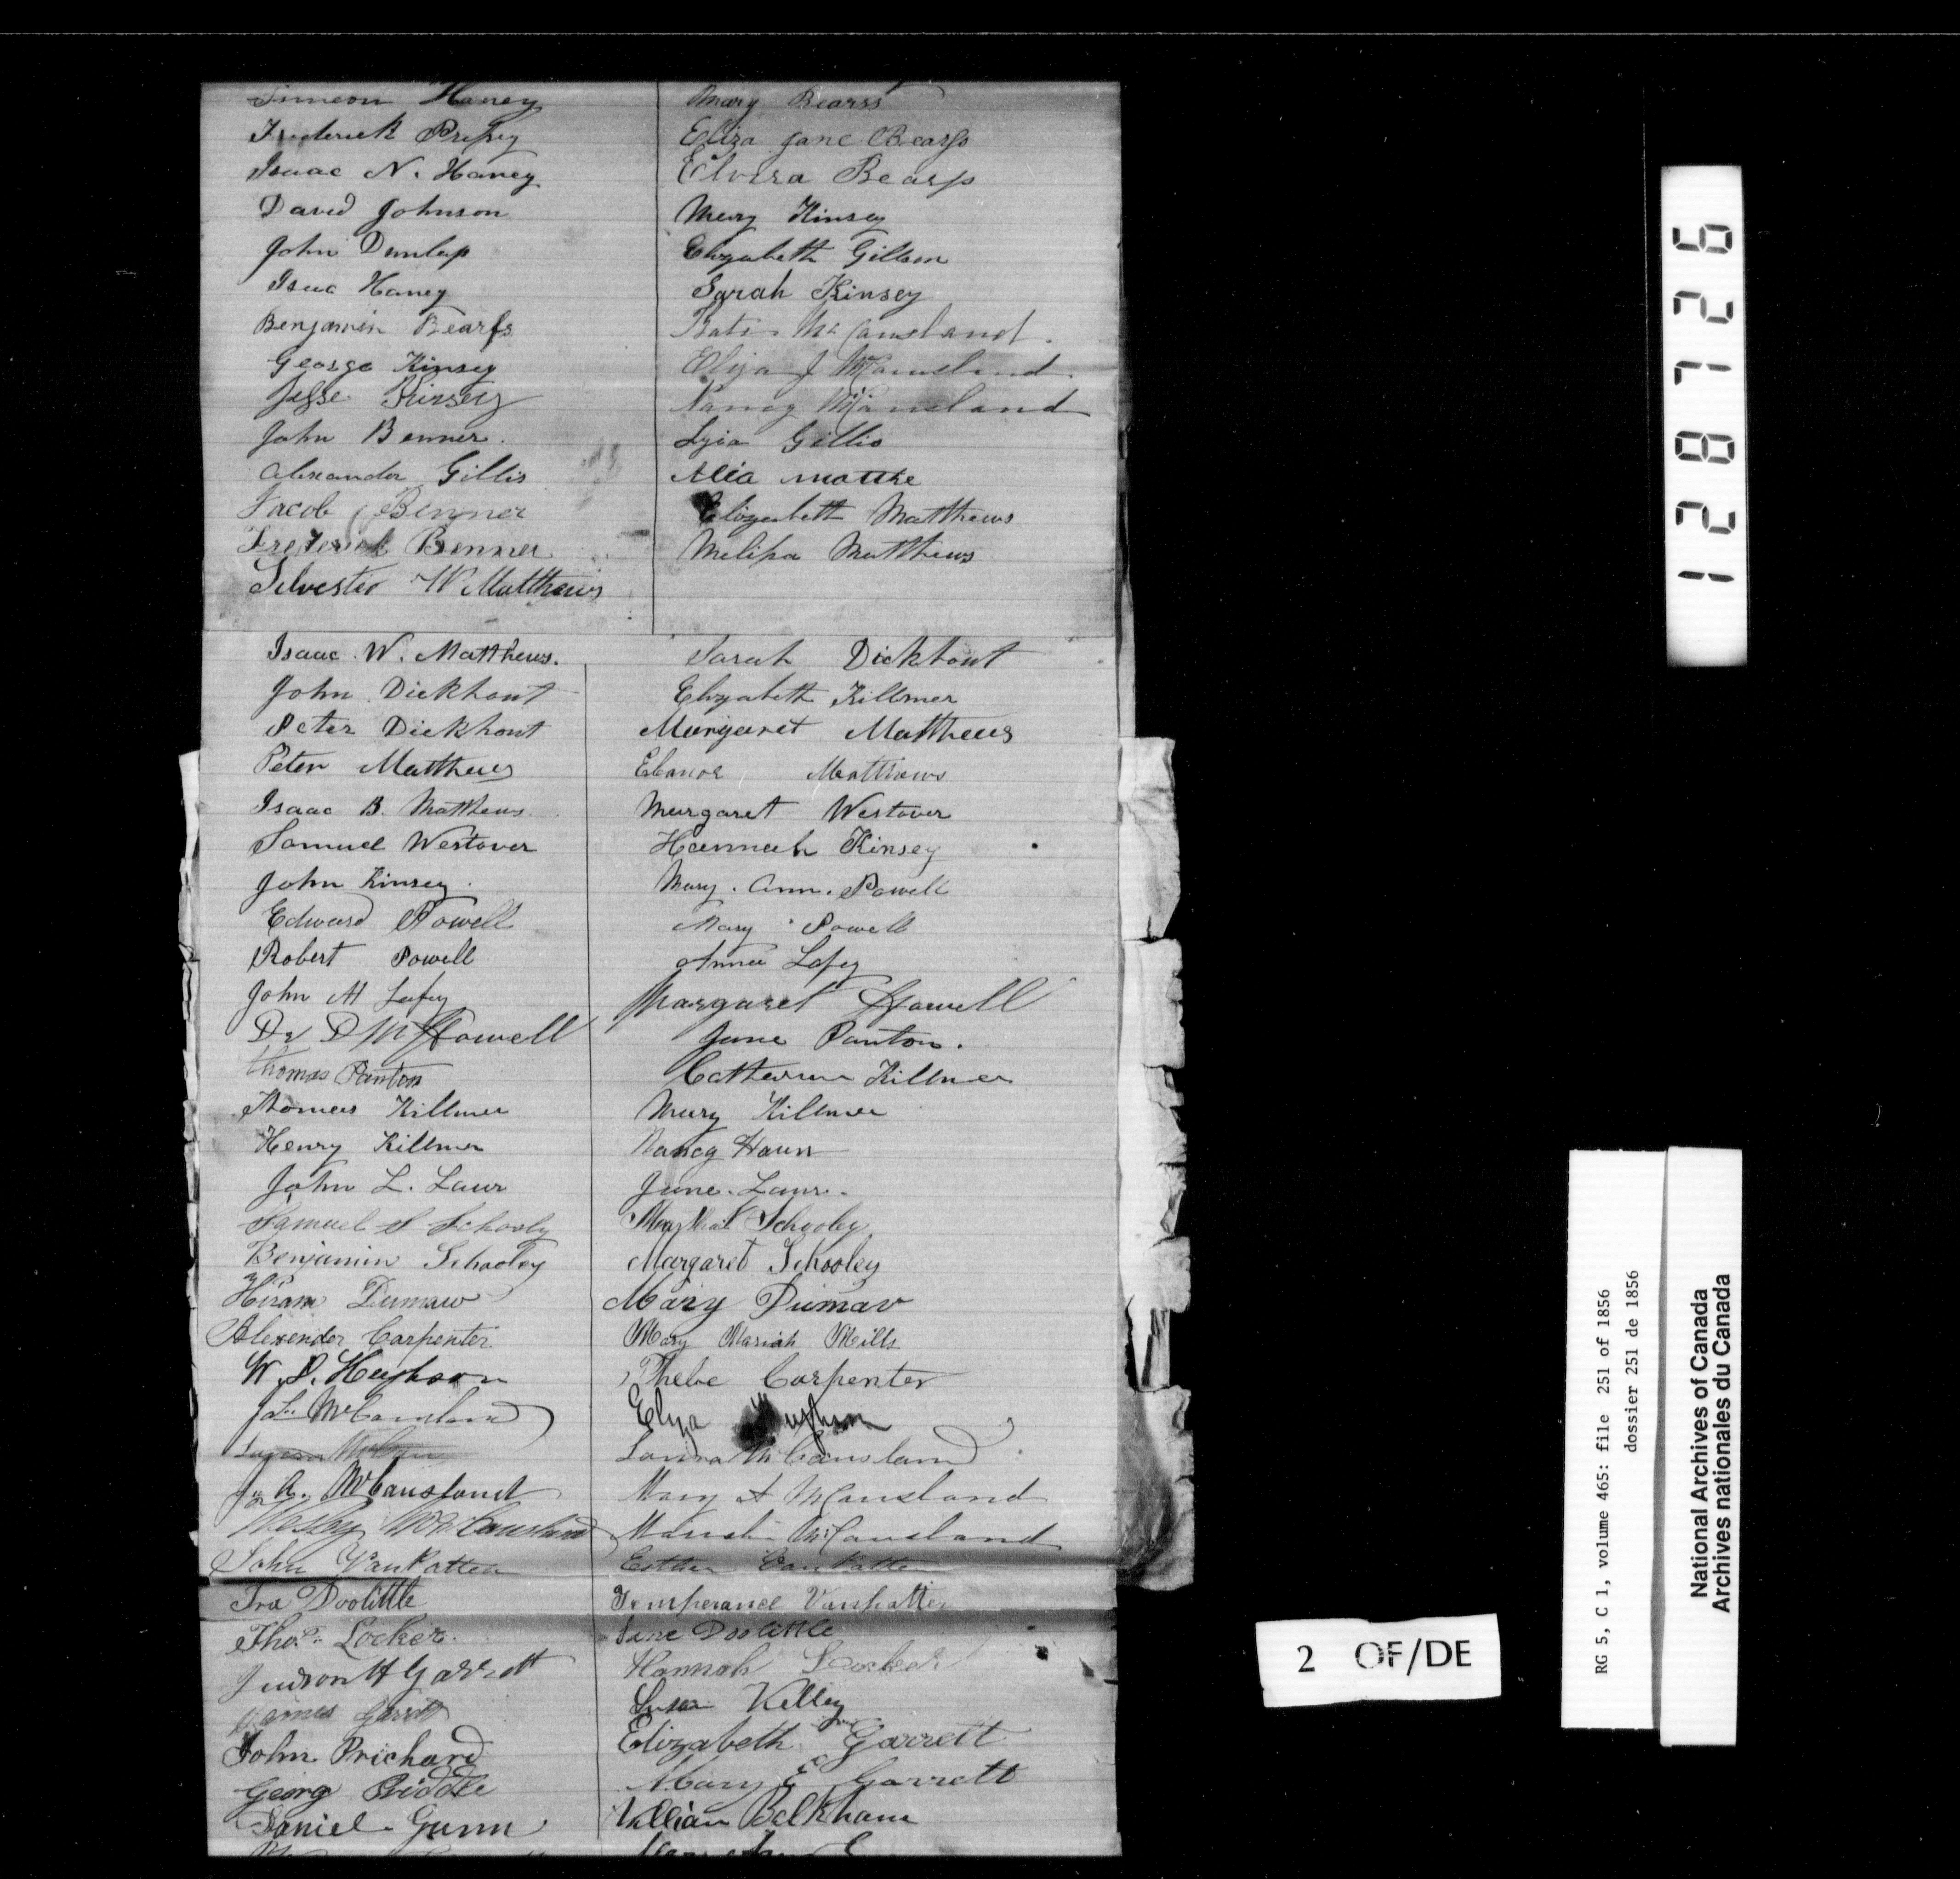 Simeon Haney
Frederick
Isaac N. Haney
David Johnson
John Dunlap
Isac Haney
Benjamin Bearss
George Kinsey
Jesse Kinsey
John Benner.
Alexander Gillis
Jacob Benner
Frederick Benner
Silvester W Matthews
Mary Bearss
Eliza Jane Bearss
Elvira Bearss
Mary Kinsey
Elizabeth Gillam
Sarah Kinsey
McCausland.
Eliza J McCausland.
Nancy McCausland
Gillis
Elizabeth Matthews
Melissa Matthews
Isaac W. Matthews.
John Dickhout
Peter Dickhout
Peter Matthews
Isaac B. Matthews
Samuel Westover
John Kinsey.
Edward Powell
Robert Powell
John M Lafey
Dr D Mc Howell
Thomas Panton
Thomas Killmer
Henry Killmer
John L. Laur
Samuel S Schooly
Benjamin Schooley
Hiram Dumaw
Alexender Carpenter
W. P. Hughson
Jas. McCausland
J. A. McCausland
McCausland
John VanPatten
Ira Doolittle
Thos. Locker.
Judson H Garrett
James Garrett
John Prichard
Georg Riddle
Daniel Gunn
Sarah Dickhout
Elizabeth Killmer
Margaret Matthews
Elanor Matthews
Margaret Westover
Hannah Kinsey
Mary. Ann. Powell
Mary Powell
Anna Lafey
Margaret Howell
Jane Panton.
Catherine Killmer
Mary Killmer
Nancy Haun
Jane. Laur.
Marthat Schooley
Margaret Schooley
Mary Dumav
Mary Mariah Mills
Phebe Carpenter
Eliza Hughson
Lovina McCausland
Mary A McCausland
McCausland
Esther VanPatten
Temperance Vanpatten
Jane Doolittle
Hannah Locker
Susan Kelley
Elizabeth Jane Garrett
Mary E Garrett
William Belkham
128726
2 OF/DE
RG 5, C 1, volume 465: file 251 of 1856
dossier 251 de 1856
National Archives of Canada
Archives nationales du Canada